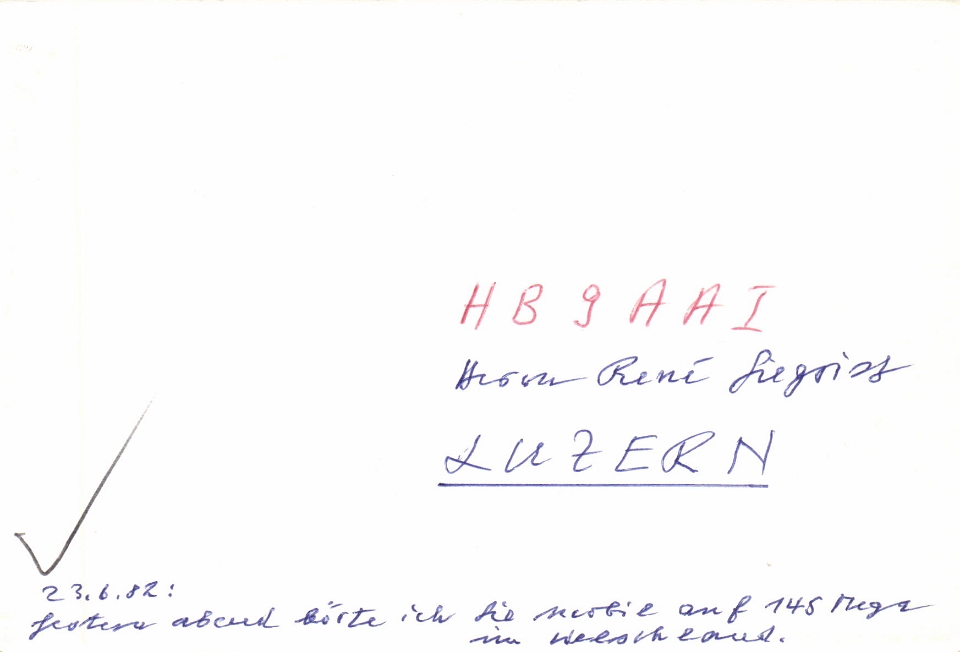 HB9AAI
Herrn René Siegrist
LUZERN
23.6.82:
gestern abend hörte ich Sie mobil auf 145 Mega
im Welschland.